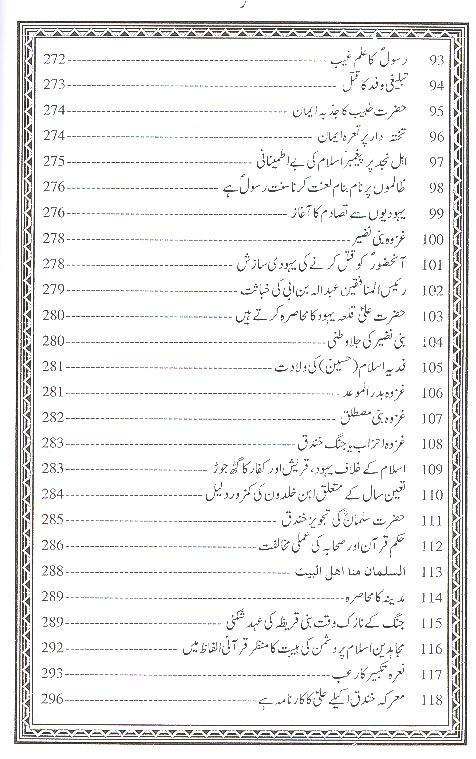 ر
93 رسولؐ کا علم غیب 272
94 تبلیغی وفد کا قتل 273
95 حضرت خبیب کا جذبہ ایمان 274
96 تختہ دار پر نعرہ ایمان 274
97 اہل نجد پر پیغمبر اسلام کی بے اطمینانی 275
98 ظالموں پر نام بنام لعنت کرنا سنت رسولؐ ہے 276
99 یہودیوں سے تصادم کا آغاز 276
100 غزوہ بنی نضیر 278
101 آنحضورؐ کو قتل کرنے کی یہودی سازش 278
102 رئیس المنافقین عبداللہ بن ابی کی خباثت 279
103 حضرت علیؑ قلعہ یہود کا محاصرہ کرتے ہیں 280
104 بنی نضیر کی جلاوطنی 280
105 فدیہ اسلام (حسینؑ) کی ولادت 281
106 غزوہ بدر الموعد 281
107 غزوہ بنی مصطلق 282
108 غزوہ احزاب یا جنگ خندق 283
109 اسلام کے خلاف یہود، قریش اور کفار کا گٹھ جوڑ 283
110 تعین سال کے متعلق ابن خلدون کی کمزور دلیل 284
111 حضرت سلمانؓ کی تجویز خندق 285
112 حکم قرآن اور صحابہ کی عملی مخالفت 286
113 السلمان منا اھل البیت 288
114 مدینہ کا محاصرہ 289
115 جنگ کے نازک وقت بنی قریظہ کی عہد شکنی 289
116 مجاہدین اسلام پر دشمن کی ہیبت کا منظر قرآنی الفاظ میں 292
117 نعرہ تکبیر کا رعب 293
118 معرکہ خندق اکیلے علیؑ کا کارنامہ ہے 296